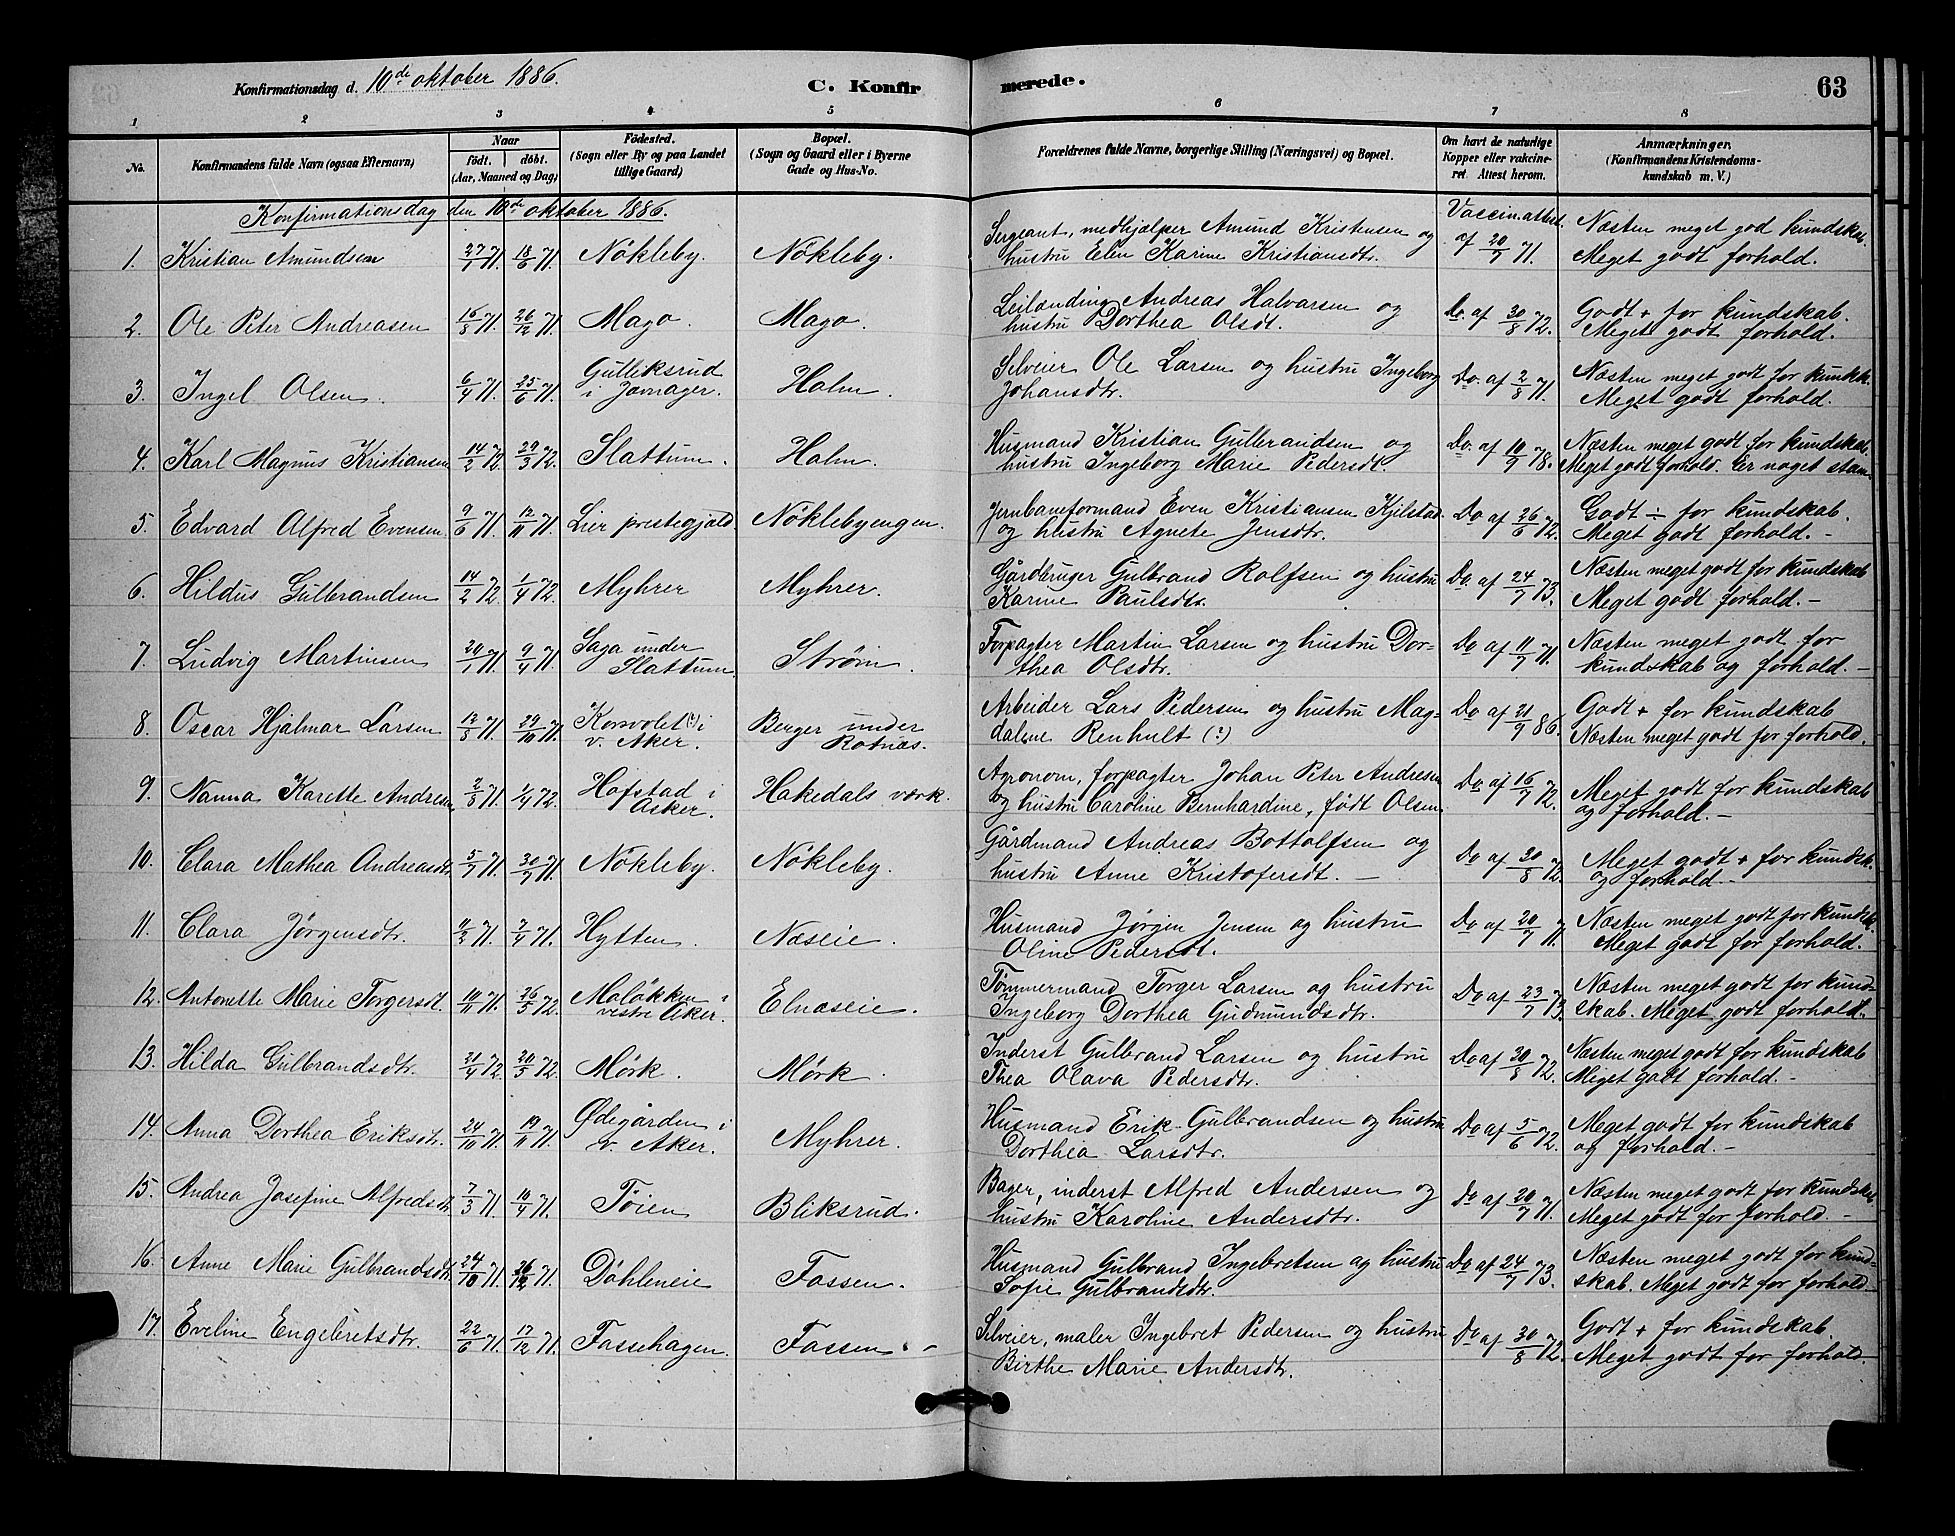 Konfirmationsdag d. 10de oktober 1886.
C. Konfirmerede.
63
1 2 3 4 5 6 7 8
No.
Konfirmandens fulde Navn (ogsaa Efternavn)
Naar
født. døbt.
(Aar, Maaned og Dag)
Födested.
(Sogn eller By og paa Landet
tillige Gaard)
Bopæl.
(Sogn og Gaard eller i Byerne
Gade og Hus-No.
Forældrenes fulde Navne, borgerlige Stilling (Næringsvei) og Bopæl.
Om havt de naturlige
Kopper eller vakcine-
ret. Attest herom.
Anmærkninger.
(Konfirmandens Kristendoms-
kundskab m. V.)
Konfirmationsdag den 10de oktober 1886.
1. Kristian Amundsen 27/1 71. 18/6 71. Nökleby. Nökleby. Sergeant, medhjælper Amund Kristensen og
hustru Elen Karine Kristiansdtr. Vaccin.attest. af 20/7 71. Næsten meget god kundskab.
Meget godt forhold.
2. Ole Peter Andreasen 16/8 71. 26/12 71. Mago. Mago. Leilænding Andreas Halvarsen og
hustru Dorthea Olsdt. Do. af 30/8 72. Godt + for kundskab.
Meget godt forhold.
3. Ingel Olsen. 6/4 71. 25/6 71. Gulliksrud
i Jevnager. Holm. Selveier Ole Larsen og hustru Ingeborg
Johansdtr. Do. af 2/8 71. Næsten meget godt for kundsk.
Meget godt forhold.
4. Karl Magnus Kristiansen 14/2 72. 29/3 72. Slattum. Holm. Husmand Kristian Gulbrandsen og
hustru Ingeborg Marie Pedersdt. Do. af 10/9 78. Næsten meget godt for kundskab.
Meget godt forhold. Er noget stam
5. Edvard Alfred Evensen 9/6 71. 12/11 71. Lier prestegjæld Nöklebyengen. Jernbaneformand Even Kristiansen Kjilstad
og hustru Agnete Jensdtr. Do af 26/6 72. Godt ÷ for kundskab.
Meget godt forhold. -
6. Hildus Gulbrandsen 14/2 72. 1/4 72. Myhrer Myhrer. Gårdbruger Gulbrand Rolfsen og hustru
Karine Paulsdtr. Do. af 24/7 73. Næsten meget godt for kundskab
Meget godt forhold. -
7. Ludvig Martinsen 20/1 71. 9/4 71. Saga under
Slattum. Strøm. Forpagter Martin Larsen og hustru Dor-
thea Olsdtr. Do af 11/7 71. Næsten meget godt for
kundskab og forhold. -
8. Oscar Hjalmar Larsen 13/8 71. 29/10 71. Korsvolet (?) i
v. Aker. Berger under
Rotnæs. Arbeider Lars Pedersen og hustru Mag-
dalene Renhult (?) Do af 21/9 86. Godt + for kundskab
Næsten meget godt for forhold.
9. Nanna Karette Andresen 2/8 71. 1/4 72. Hofstad i
Asker. Hakedals værk. Agronom, forpagter Johan Peter Andresen
og hustru Caroline Bernhardine, født Olsen Do af 16/7 72. Meget godt for kundskab
og forhold. -
10. Clara Mathea Andreasdtr. 5/7 71. 30/7 71. Nökleby. Nökleby. Gårdmand Andreas Bottolfsen og
hustru Anne Kristofersdt. - Do af 30/8 72. Meget godt + for kundsk.
og forhold. -
11. Clara Jørgensdtr. 11/2 71. 7/4 71. Hytten. Næseie. Husmand Jørgen Jensen og hustru
Oline Pedersdt. Do af 20/7 71. Næsten meget godt for kundsk.
Meget godt for forhold.
12. Antonette Marie Torgersdt. 10/11 71. 26/5 72. Moløkken i
vestre Aker. Elnæseie. Tömmermand Torger Larsen og hustru
Ingeborg Dorthea Gudmundsdtr. Do af 23/7 73. Næsten meget godt for kund-
skab. Meget godt forhold.
13. Hilda Gulbrandsdtr. 21/4 72. 20/5 72. Mørk. Mørk. Inderst Gulbrand Larsen og hustru
Thea Olava Pedersdtr. Do af 30/8 72. Næsten meget godt for kundskab
Meget godt forhold. -
14. Anna Dorthea Eriksdtr. 24/10 71. 19/11 71. Ødegården i
v. Aker. Myhrer. Husmand Erik Gulbrandsen og hustru
Dorthea Larsdtr. Do af 5/6 72. Meget godt for kundskab
og forhold. -
15. Andrea Josefine Alfredsdtr 7/3 71. 10/4 71. Töien Bliksrud. Bager, inderst Alfred Andersen og
hustru Karoline Andersdtr. Do af 20/7 71. Næsten meget godt for kundskab
Meget godt for forhold. -
16. Anne Marie Gulbrandsdtr. 24/10 71. 26/12 71. Döhleneie Fossen. Husmand Gulbrand Ingebretsen og hustru
Sofie Gulbrandsdtr. Do af 24/7 73. Næsten meget godt for kund-
skab. Meget godt for forhold. -
17. Eveline Engebretsdtr. 22/6 71. 17/12 71. Fossehagen. Fossen. - Selveier, maler Ingebret Pedersen og hustru
Birthe Marie Andersdtr. Do af 30/8 72. Godt + for kundskab.
Meget godt for forhold.